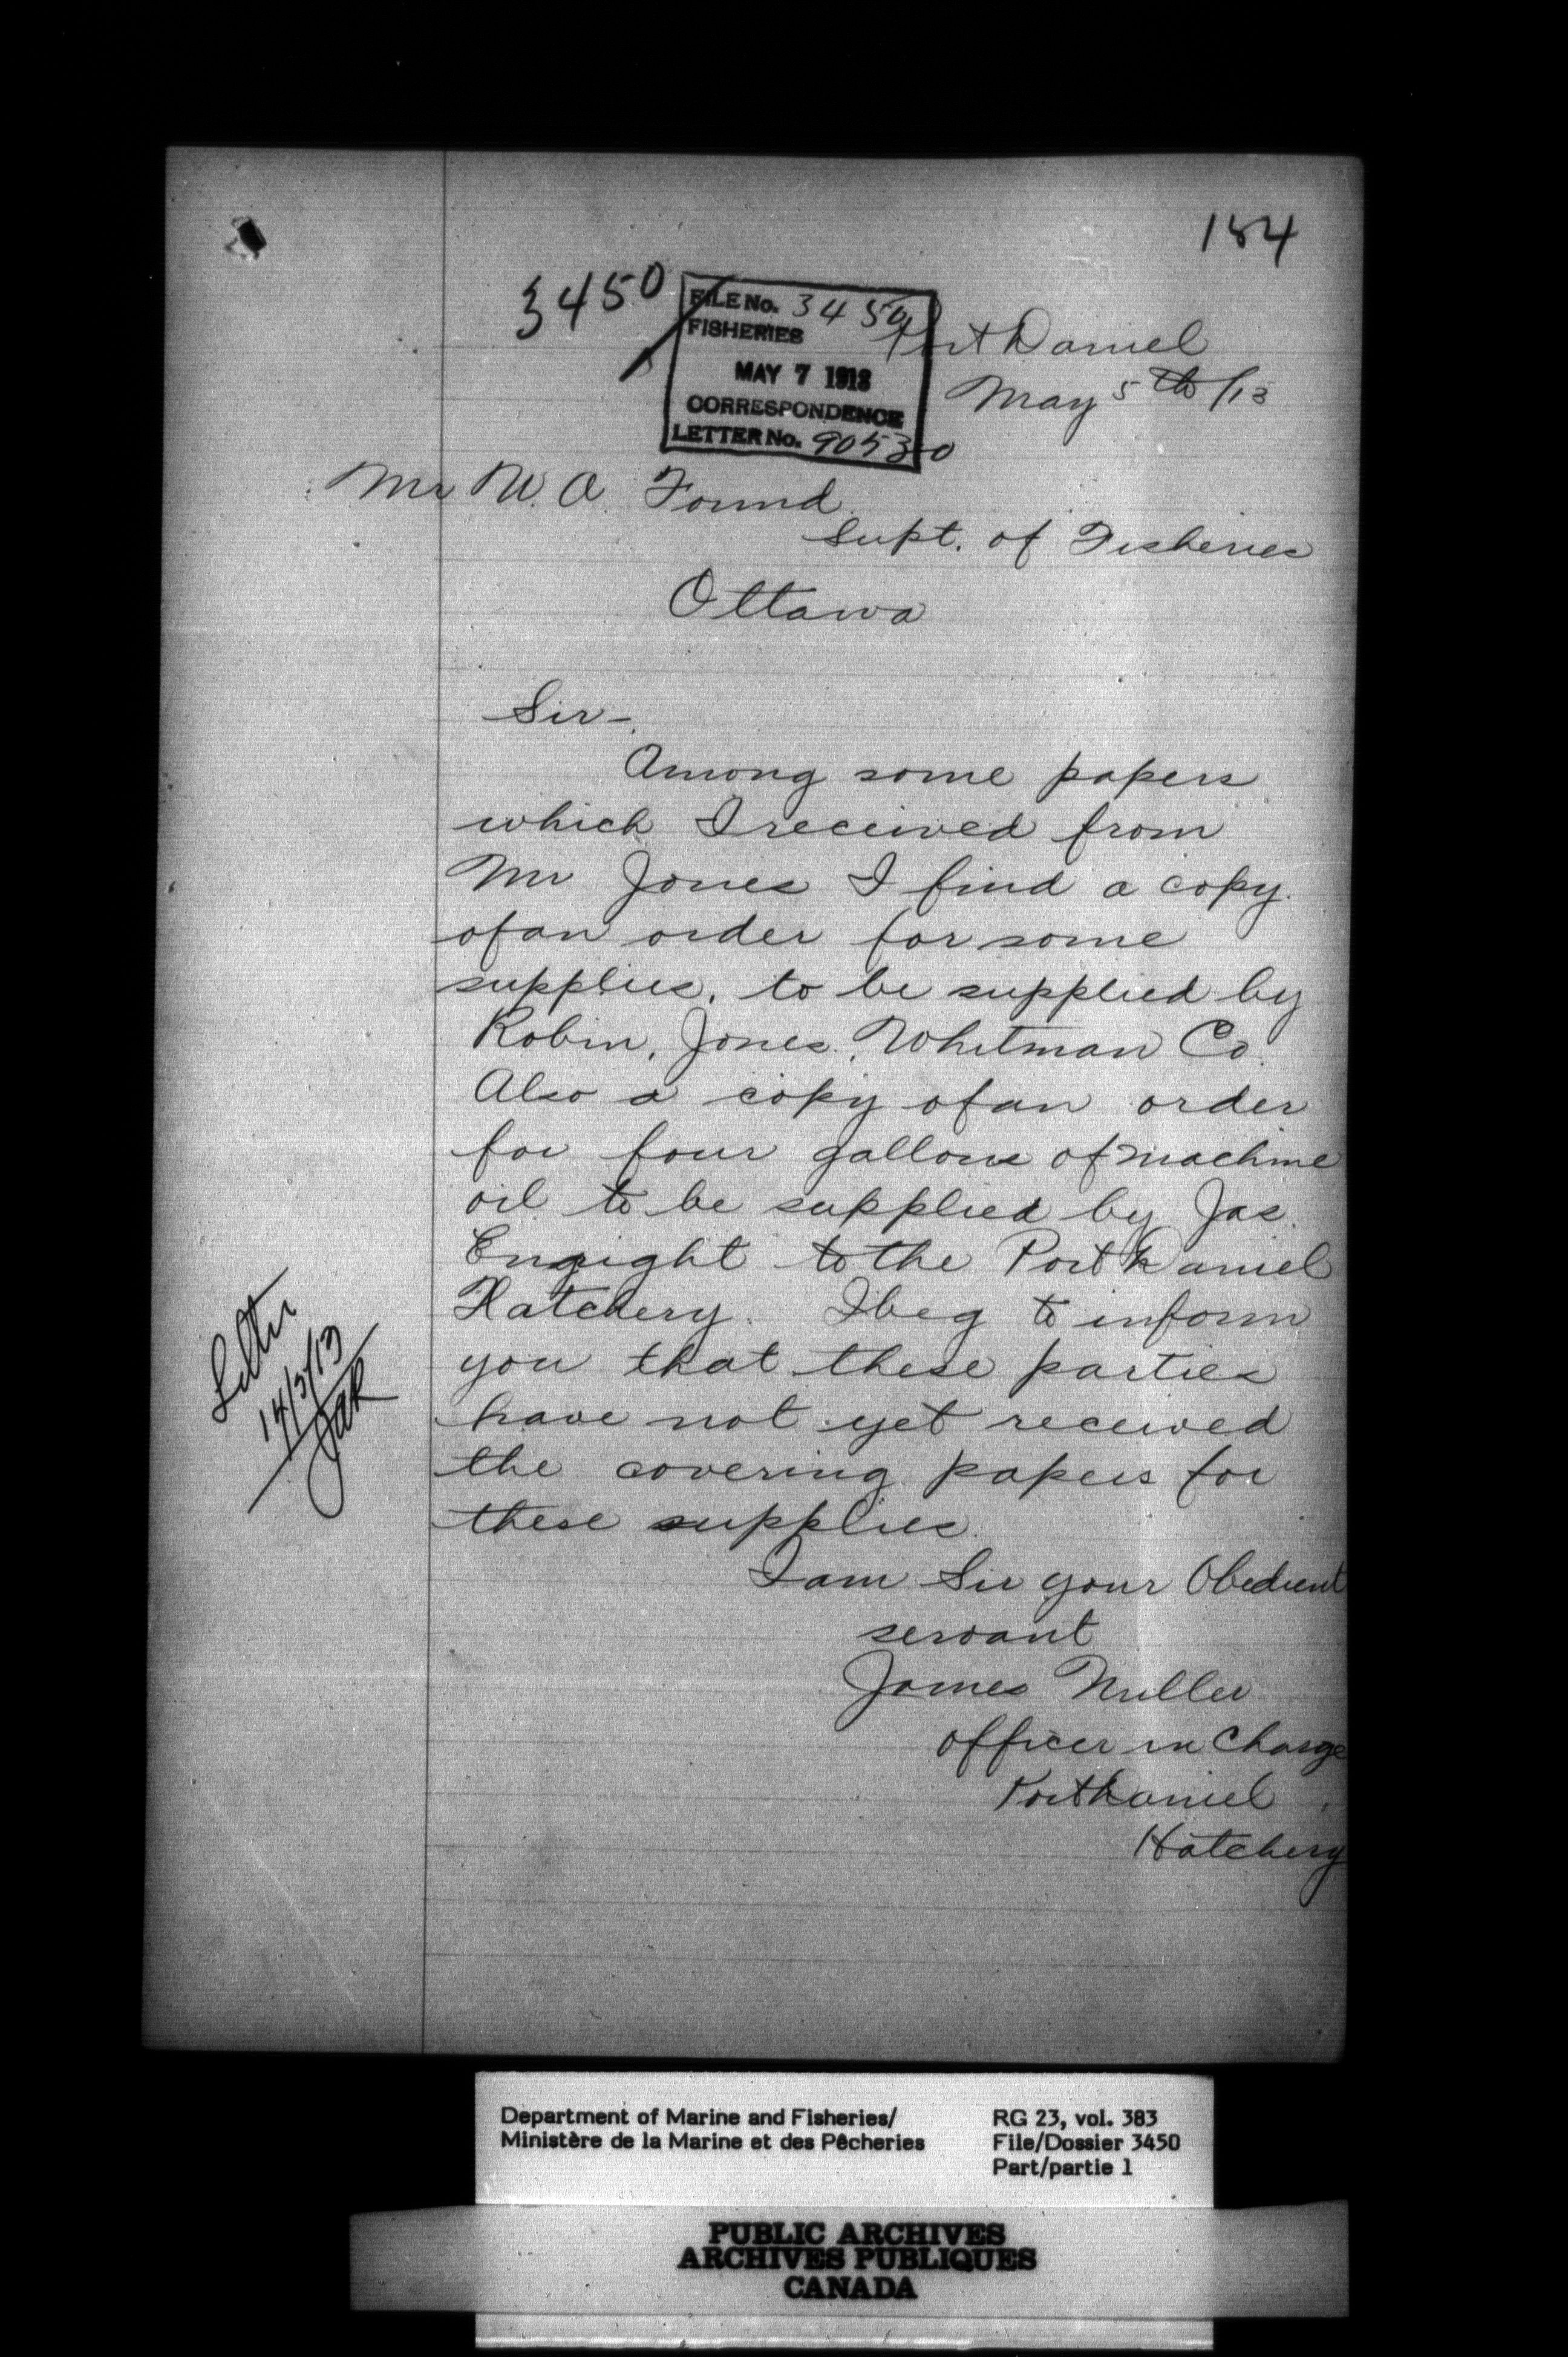 184
3450
FILE No. 3450
FISHERIES
MAY 7 1913
CORRESPONDENCE
LETTER No. 90530
Port Daniel
May 5th/13
Mr W. A. Found
Supt. of Fisheries
Ottawa
Sir-
Among some papers
which I received from
Mr Jones I find a copy
of an order for some
supplies, to be supplied by
Robin, Jones, Whitman Co.
Also a copy of an order
for four gallons of machine
oil to be supplied by Jas.
Enright to the Port Daniel
Hatchery. I beg to inform
you that these parties
have not yet received
the covering papers for
these supplies.
I am Sir your Obedient
servant
James Miller
officer in Charge
Port Daniel
Hatchery
Letter
14/5/13
Department of Marine and Fisheries/
Ministère de la Marine et des Pêcheries
RG 23, vol. 383
File/Dossier 3450
Part/partie 1
PUBLIC ARCHIVES
ARCHIVES PUBLIQUES
CANADA